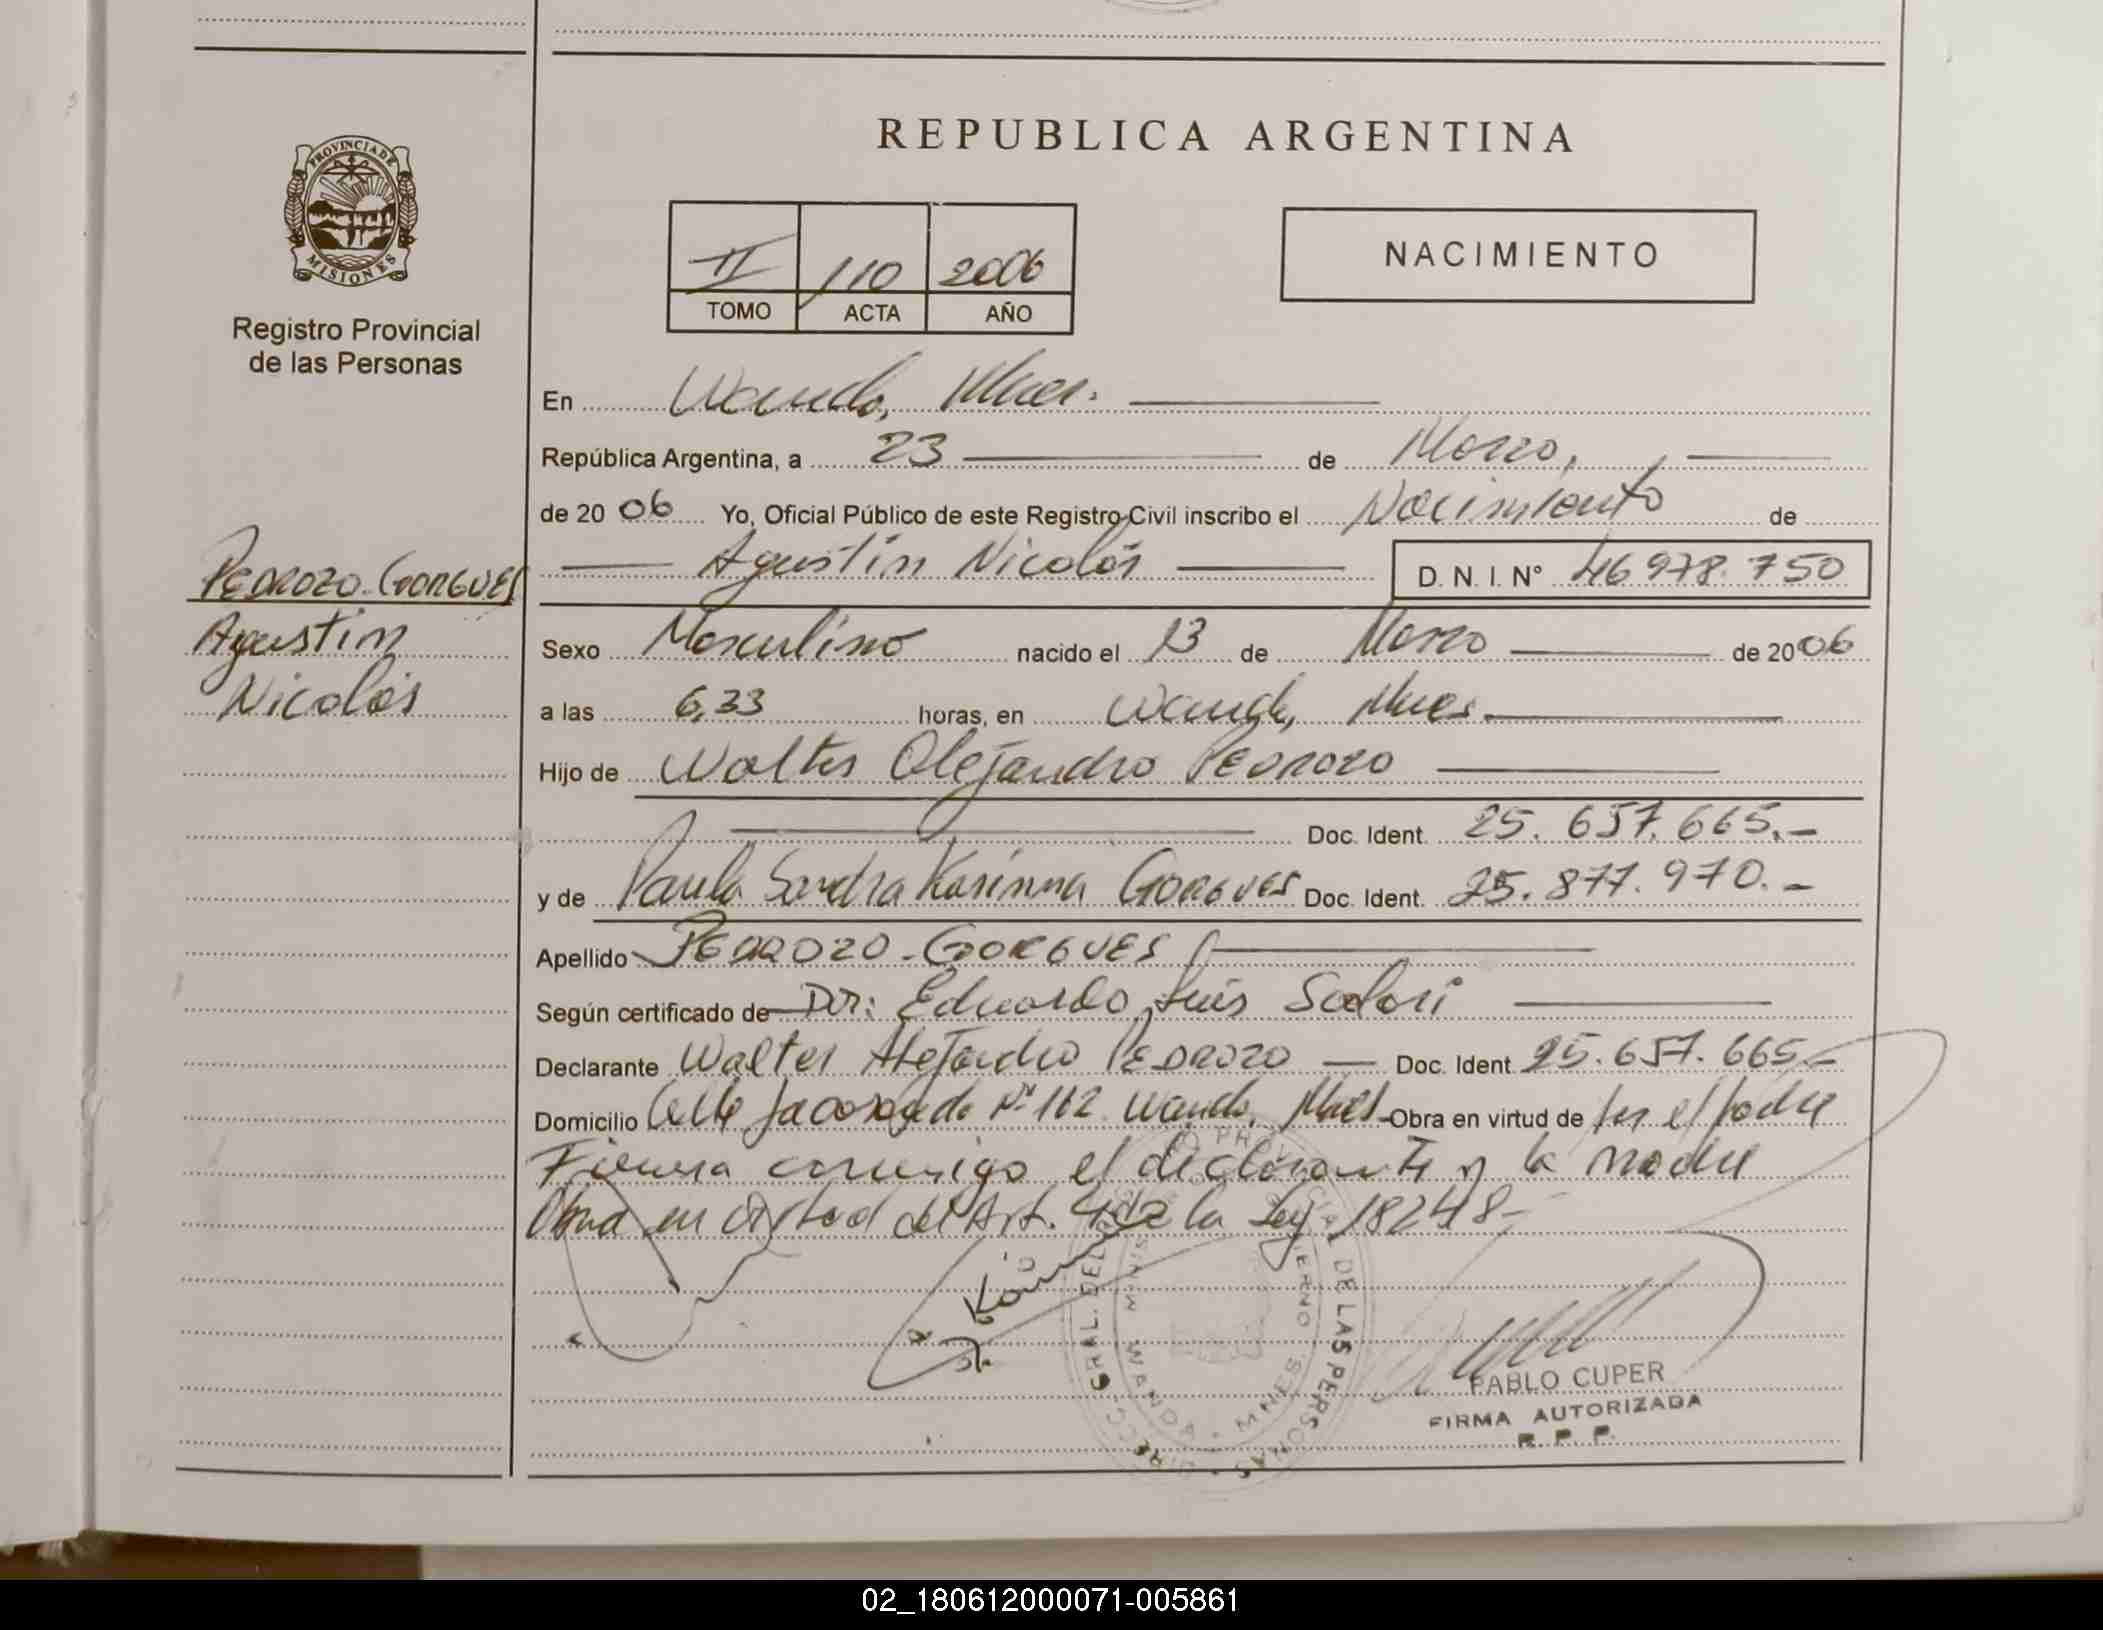 REPUBLICA ARGENTINA
PROVINCIA DE MISIONES
Registro Provincial
de las Personas
II 110 2006
TOMO ACTA AÑO
NACIMIENTO
En Wanda, Mnes.
República Argentina, a 23 de Marzo,
de 2006 Yo, Oficial Público de este Registro Civil inscribo el Nacimiento de
Agustín Nicolás D. N. I. Nº 46978.750
PEDROZO-GORGUES
Agustín
Nicolás
Sexo Masculino nacido el 13 de Marzo de 2006
a las 6,33 horas, en Wanda, Mnes
Hijo de Walter Alejandro PEDROZO
Doc. Ident. 25.657.665.-
y de Paula Sandra Karinna GORGUES Doc. Ident. 25.877.970.-
Apellido PEDROZO-GORGUES
Según certificado de Dr: Eduardo Luis
Declarante Walter Alejandro PEDROZO Doc. Ident. 25.657.665-
Domicilio Calle Nº 162 Wanda, Mnes- Obra en virtud de ser el padre
Firma conmigo el declarante y la madre
Obra en virtud del Art. 4 de la Ley 18248-
PABLO CUPER
FIRMA AUTORIZADA
R. P. P.
02_180612000071-005861